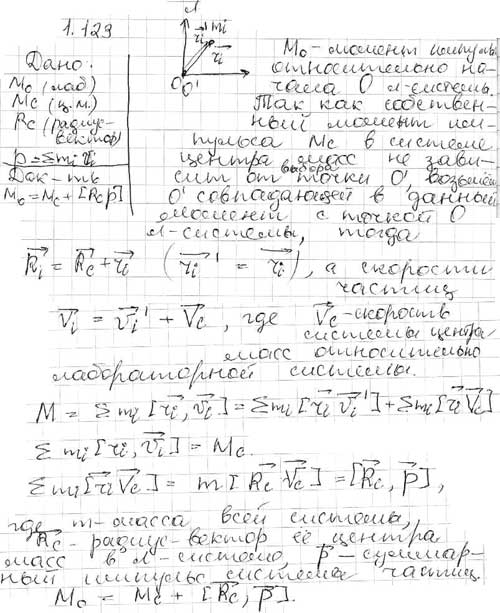 1.129
л
mi
ri' ri
O O'
Дано:
Mo (лаб)
Mc (ц.м.)
Rc (радиус-
вектор)
p = Σmi vi
Док-ть
Mo = Mc + [Rc p]
Mo - момент импульса
относительно на-
чала O л-системы.
Так как собствен-
ный момент им-
пульса Mc в системе
центра масс не зави-
сит от выбора точки O', возьмём
O' совпадающей в данный
момент с точкой O
л-системы, тогда
Ri = Rc + ri (ri' = ri), а скорости
частиц
vi = vi' + Vc, где Vc - скорость
системы центра
масс относительно
лабораторной системы.
M = Σ mi [ri, vi] = Σmi [ri vi'] + Σmi [ri Vc]
Σ mi [ri, vi] = Mc.
Σ mi [ri Vc] = m [Rc Vc] = [Rc, p],
где m - масса всей системы,
Rc - радиус-вектор её центра
масс в л-системе, p - суммар-
ный импульс системы частиц.
Mo = Mc + [Rc, p].